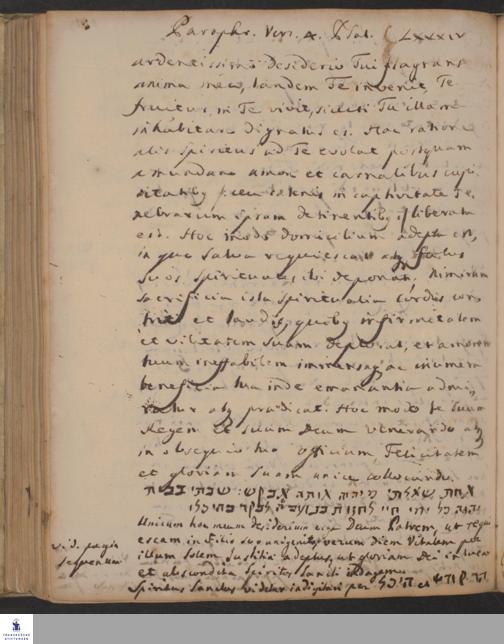 Paraphr. Vers. 4. Psal. LXXXIV
ardentissimo desiderio Tui flagrans
anima mea, tandem Te invenit, Te
fruitur, in Te vivit, sicuti Tu illam
inhabitare dignatus es. Hac ratione
alis Spiritus ad Te evolat postquam
a mundano amore et carnalibus cupi
ditatibq ceu catenis in captivitate Te
nebrarum ipsam detinentibq, liberata
est. Hoc modo domicilium adepta est,
in quo salva requiescat atq foetus
suos spirituales ibi deponat. Nimirum
sacrificia ista spiritualia Cordis con
triti et laudis, quibq infirmitatem
et vilitatem suam deplorat, et amorem
tuum ineffabilem immensaq ac innumera
beneficia tua inde emanantia admi
ratur atq praedicat. Hoc modo te suum
Regem et suum Deum venerando atq
in obsequio tuo officium, Felicitatem
et gloriam suam unice collocando.
אחת שאלתי מיהוה אותה אבקש: שבתי בבית
יהוה כל ימי חיי לחזות בנועם יי ולבקר בהיכלו
Unicum hoc meum desiderium erga Deum Patrem, ut requi
escam in filio suo unigenito verum diem Vitalem per
illum Solem Justitiae adeptus, ut gloriam Dei intuear
et abscondita Spiritus Sancti indagem
Spiritus Sanctus videtur indigitari per היכל et
vid. pagin
sequenum
FRANCKESCHE STIFTUNGEN